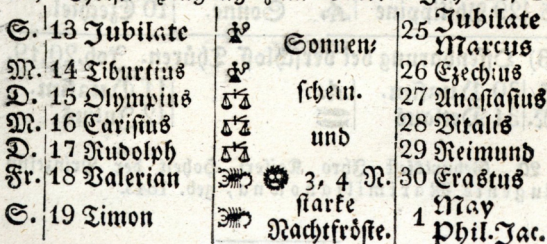 S. 13 Jubilate Sonnen⸗ 25 Jubilate Marcus
M. 14 Tiburtius 26 Ezechius
D. 15 Olympius schein. 27 Anastasius
M. 16 Carisius 28 Vitalis
D. 17 Rudolph und 29 Reimund
Fr. 18 Valerian 3, 4 N. 30 Erastus
S. 19 Timon starke Nachtfröste. 1 May Phil. Jac.